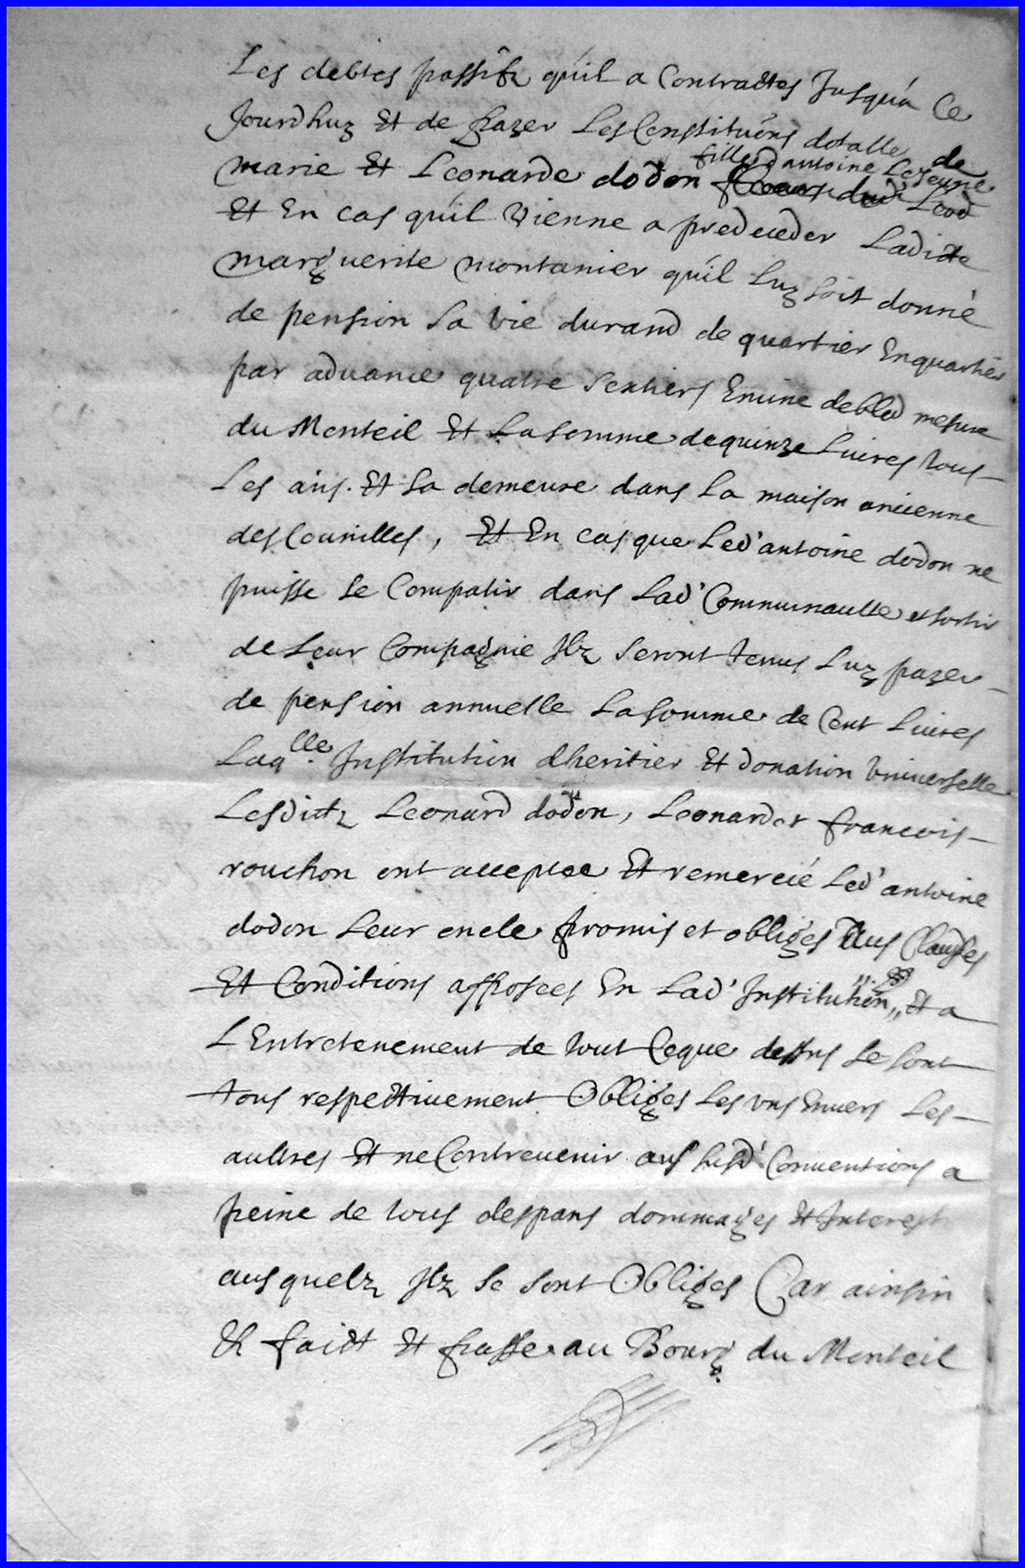 Les debtes passifz quil a Contractes Jusqua Ce
Jourdhuy Et de payer Les Constituons dotalle de
fille d'antoine Le Jeune
marie Et Leonarde dodon
Et En cas quil Vienne a predeceder Ladicte
marguerite montanier quil luy soit donné
de pension sa vie durand de quartier Enquartier
par advance quatre sextiers Emine debled mesure
du Monteil Et La somme dequinze Livres tous
Les ans. Et sa demeure dans La maison ancienne
des Counilles, Et En cas que Led' antoine dodon ne
puisse se Compatir dans Lad' Communaulte et sortir
de Leur Compagnie Ilz seront tenus Luy payer
de pension annuelle La somme de Cent Livres
Laqlle. Institution dheritier Et donation Universelle
Lesdictz Leonard dodon, Leonard et francois
rouchon ont acceptee Et remercié Led' antoine
dodon Leur oncle promis et obliges aus Clauses
Et Conditions apposees En Lad' Institution, Et a
L'Entretenement de tout Ceque dessus se sont
tous respectivement Obliges Les uns Envers Les
aultres Et ne Contrevenir aus susd' Conventions a
peine de tous despans dommages Et Interestz
ausquelz Ilz se sont Obliges Car ainsin
Et faict Et passe au Bourg du Monteil